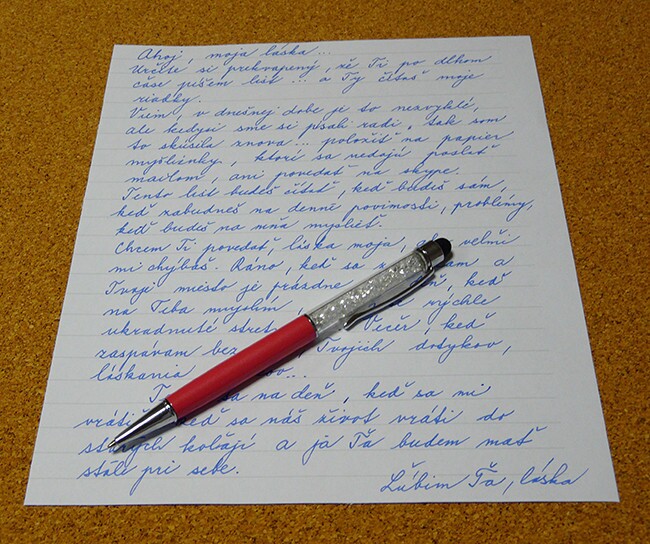 Ahoj, moja láska...
Určite si prekvapený, že Ti po dlhom
čase píšem list ... a Ty čítaš moje
riadky.
Viem, v dnešnej dobe je to nezvyklé,
ale kedysi sme si písali radi, tak som
to skúsila znova... položiť na papier
myšlienky, ktoré sa nedajú poslať
mailom, ani povedať na skype.
Tento list budeš čítať, keď budeš sám,
keď zabudneš na denné povinnosti, problémy,
keď budeš na mňa myslieť.
Chcem Ti povedať, láska moja, ako veľmi
mi chýbaš. Ráno, keď sa a
Tvoje miesto je prázdne keď
na Teba myslím rýchle
ukradnuté Večer, keď
zaspávam bez Tvojich dotykov,
láskania
na deň, keď sa mi
vrátiš keď sa náš život vráti do
starých koľají a ja Ťa budem mať
stále pri sebe.
Ľúbim Ťa, láska